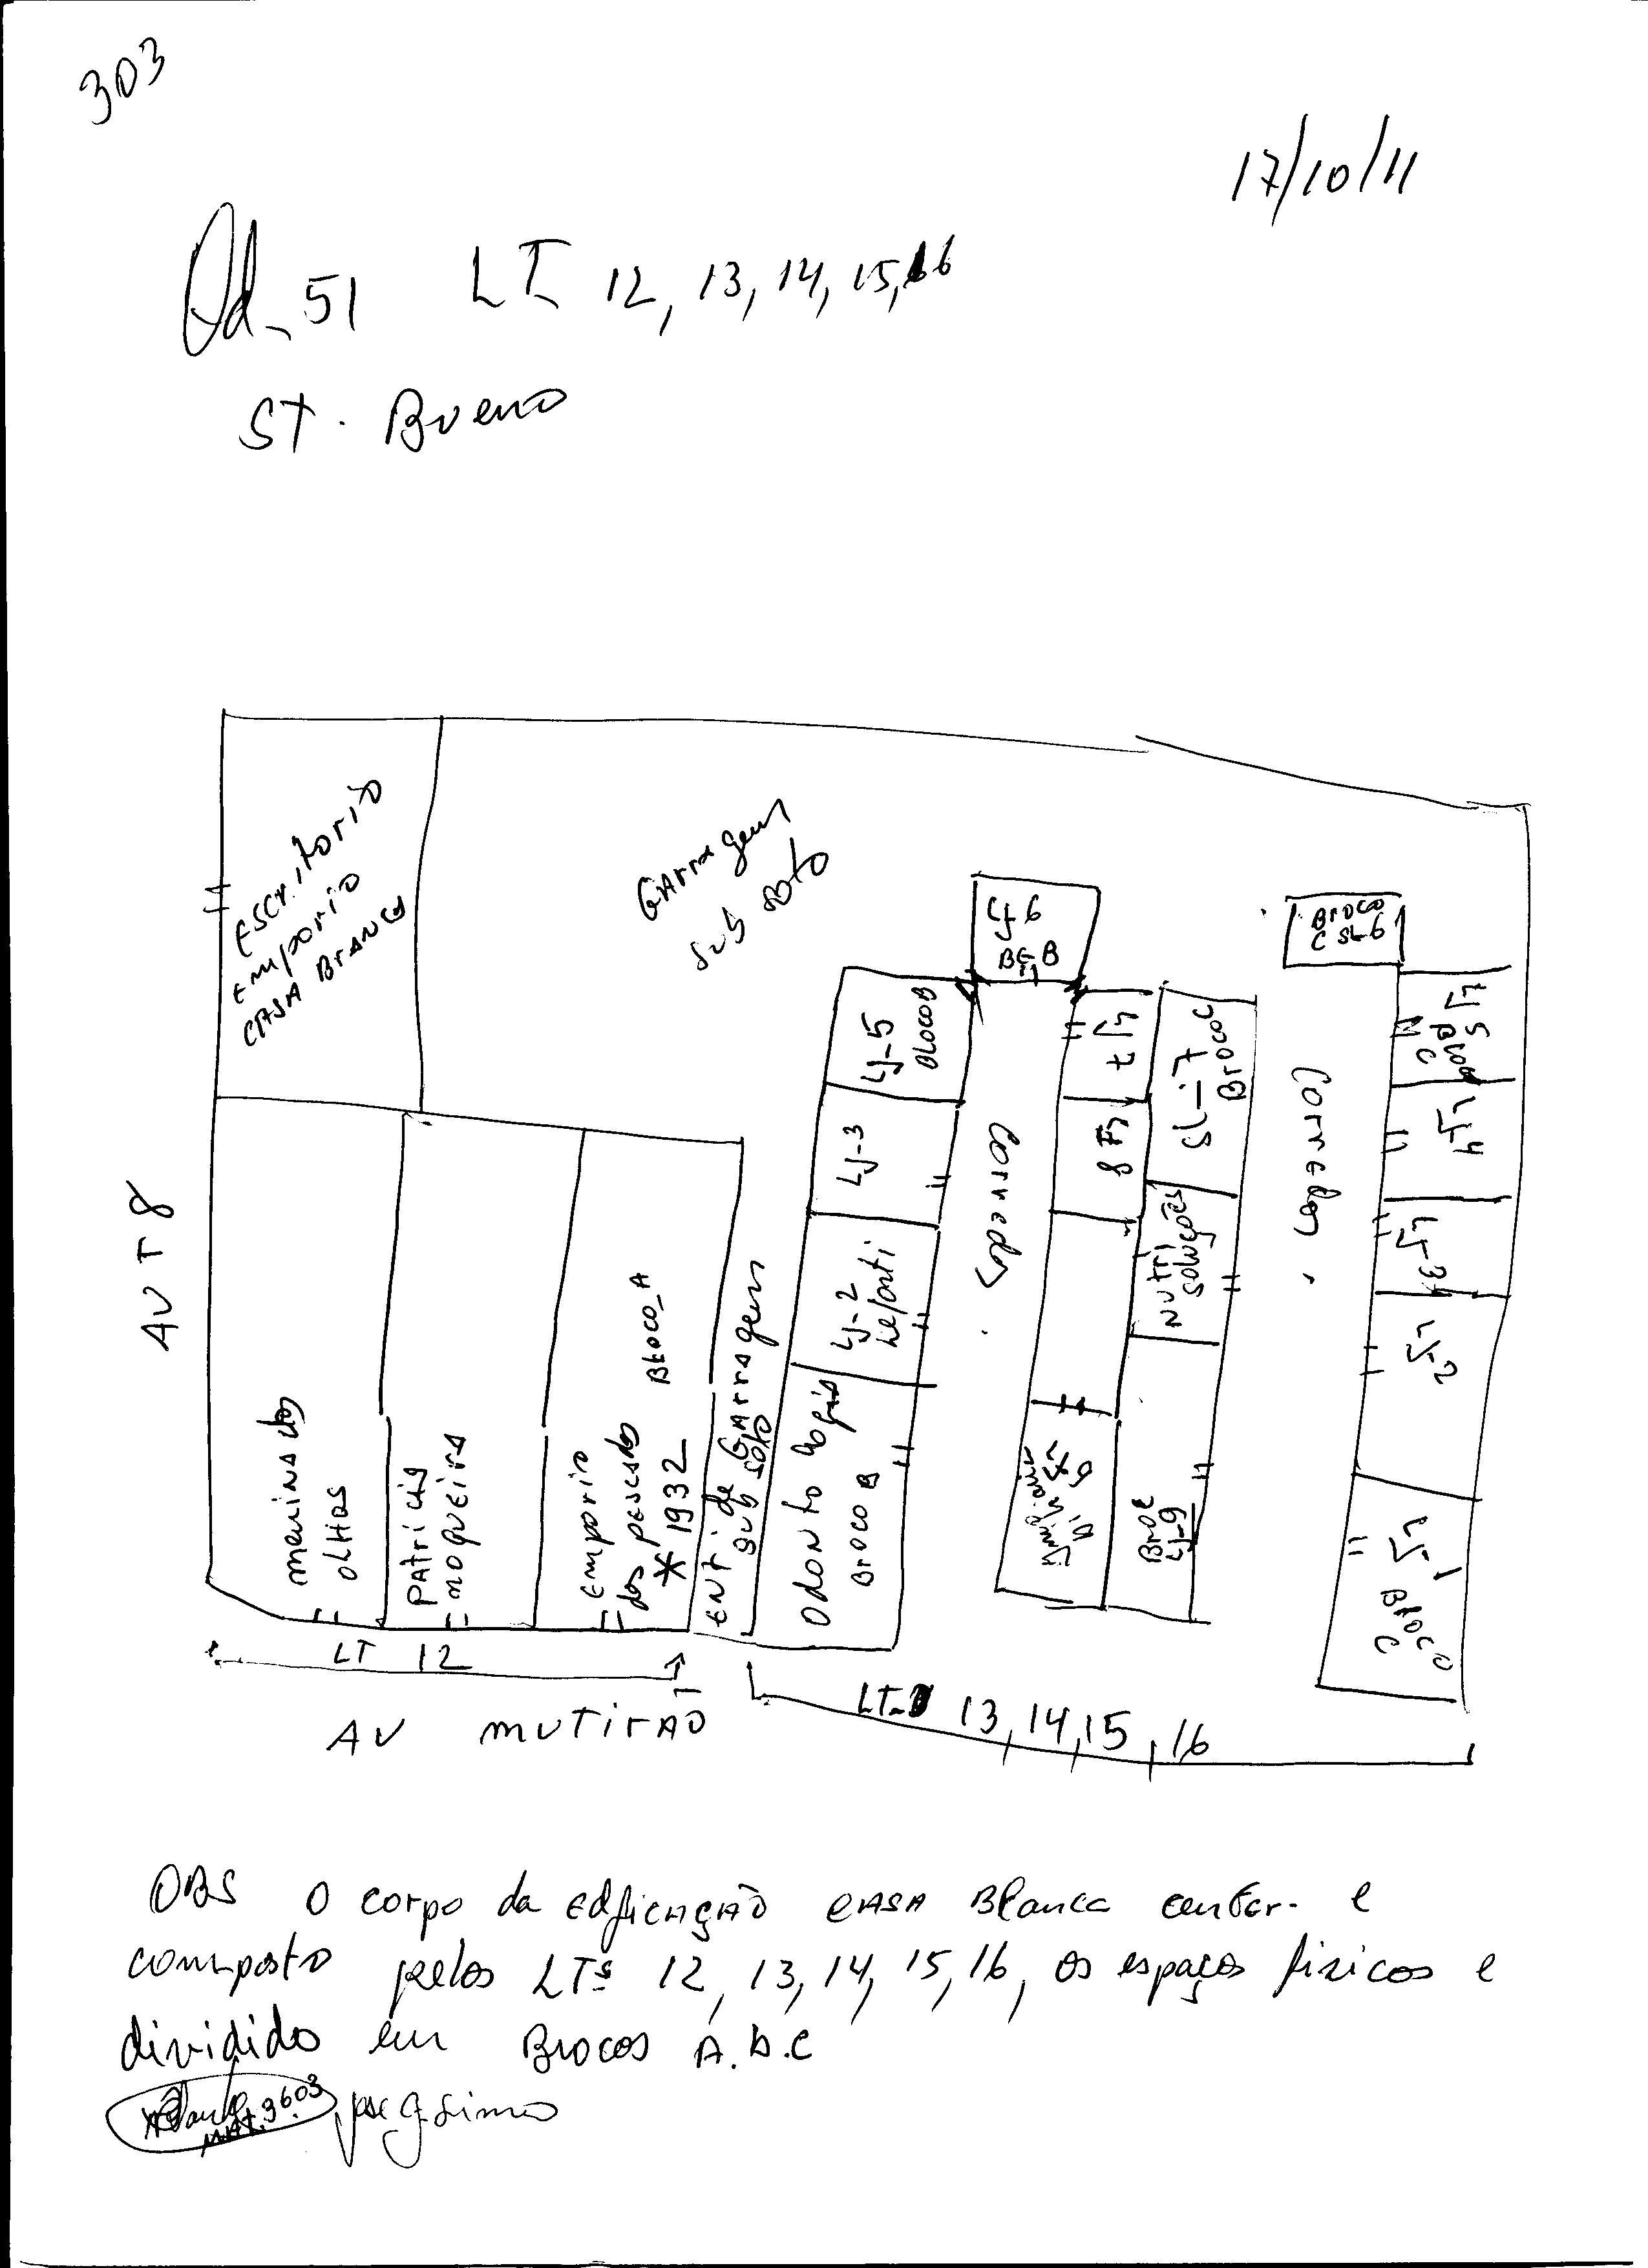 303
17/10/11
Qd_51 LT 12, 13, 14, 15, 16
ST. Bueno
Escritorio
emporio
CASA BrANCA
GArragem
sub soto
LJ 6
BL B
Broco
C SL-6
LJ-5
BLOCO B
LJ 7
SL-7
Broco C
LJ 5
Broco
C
LJ-3
Corredor
LJ 8
Corredor
LJ-4
AV T8
LJ-2
Nutri
soluções
LJ-3
LJ-2
meninA dos
olHos
PAtriciA
moqueirA
emporio
dos pescados
* 1932
Bloco_A
ENT de GArragem
sub solo
OdoNto logia
Broco B
LJ 9
Bro C
LJ-9
LJ-1
Bloco
C
LT 12
AV mutirAO
LT_ 13, 14, 15, 16
OBS O corpo da edficAçAO CASA BlancA center. e
composto pelos LTs 12, 13, 14, 15, 16, os espaços fisicos e
dividido em Brocos A.b.C
MAt. 3603